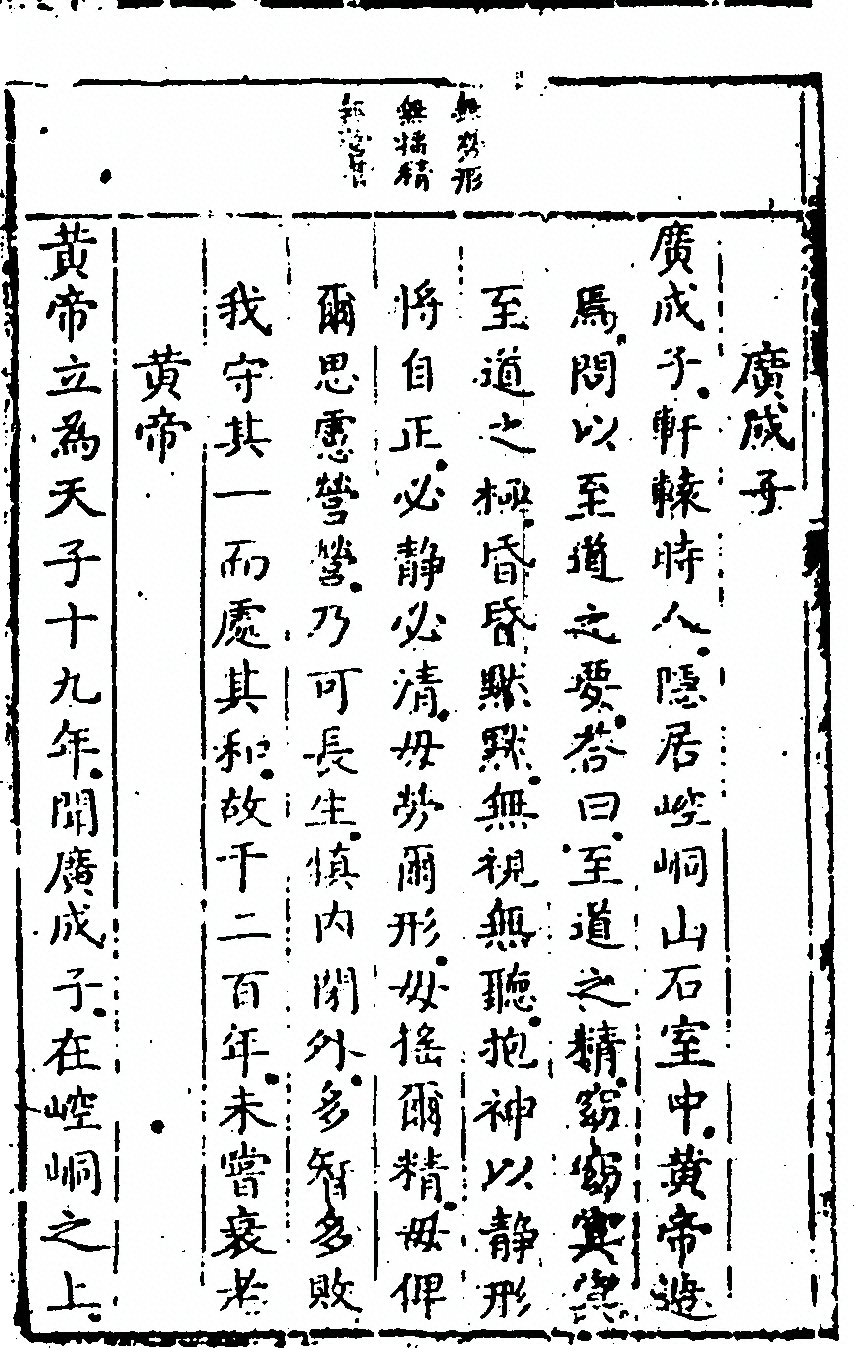 無勞形
無搖精
無思營
廣成子
廣成子軒轅時人隱居崆峒山石室中黃帝造
焉問以至道之要荅曰至道之精窈窈冥冥
至道之極昏昏默默無視無聽抱神以靜形
將自正必靜必清毋勞爾形毋搖爾精毋俾
爾思慮營營乃可長生慎內閉外多智多敗
我守其一而處其和故千二百年未嘗衰老
黃帝
黃帝立為天子十九年聞廣成子在崆峒之上